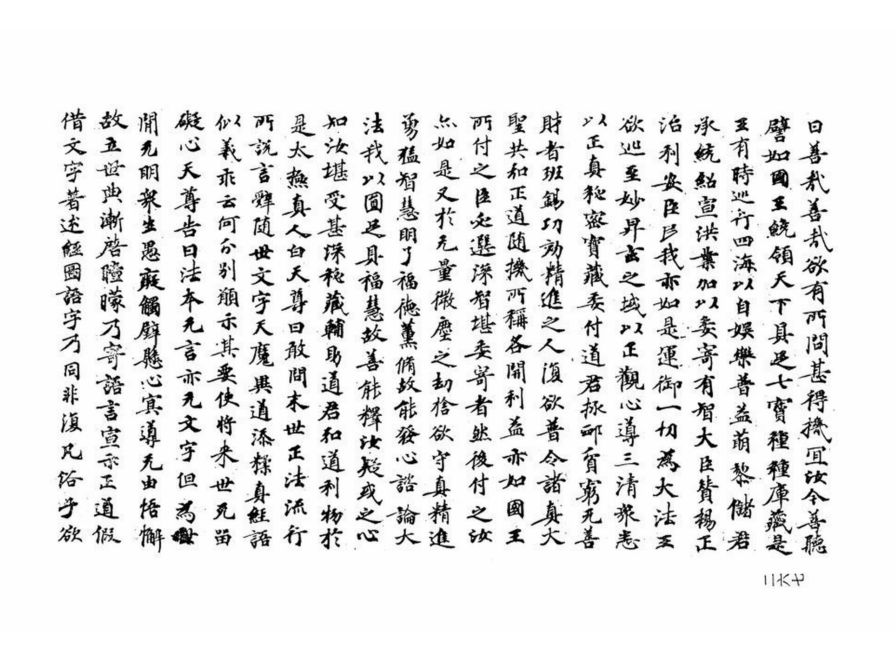 曰善哉善哉欲有所問甚得機宜汝今善聽
譬如國王統領天下具足七寶種種庫藏是
王有時巡行四海以自娛樂普益萌黎儲君
承統紹宣洪業加以委寄有智大臣贊揚正
治利安臣民我亦如是運御一切為大法王
欲巡至妙昇玄之域以正觀心導三清衆悉
以正真秘密寶藏委付道君拯邺貧窮无善
財者班錫功効精進之人復欲普令諸真大
聖共和正道随機所稱各開利益亦如國王
所付之臣必選深智堪委寄者然後付之汝
亦如是又於无量微塵之劫捨欲守真精進
勇猛智慧明了福德薰脩故能發心諮論大
法我以圓足具福慧故善能釋汝疑或之心
知汝堪受甚深秘藏輔助道君和道利物於
是太無真人白天尊曰敢問末世正法流行
所說言辭随世文字天魔異道添糅真經語
似義乖云何分别願示其要使將来世无留
礙心天尊告曰法本无言亦无文字但為世
閒无明衆生愚癡觸壁懸心寘導无由悟懈
故五世典漸啓瞳矇乃寄語言宣示正道假
借文字著述經圖語字乃同非復凡俗乎欲